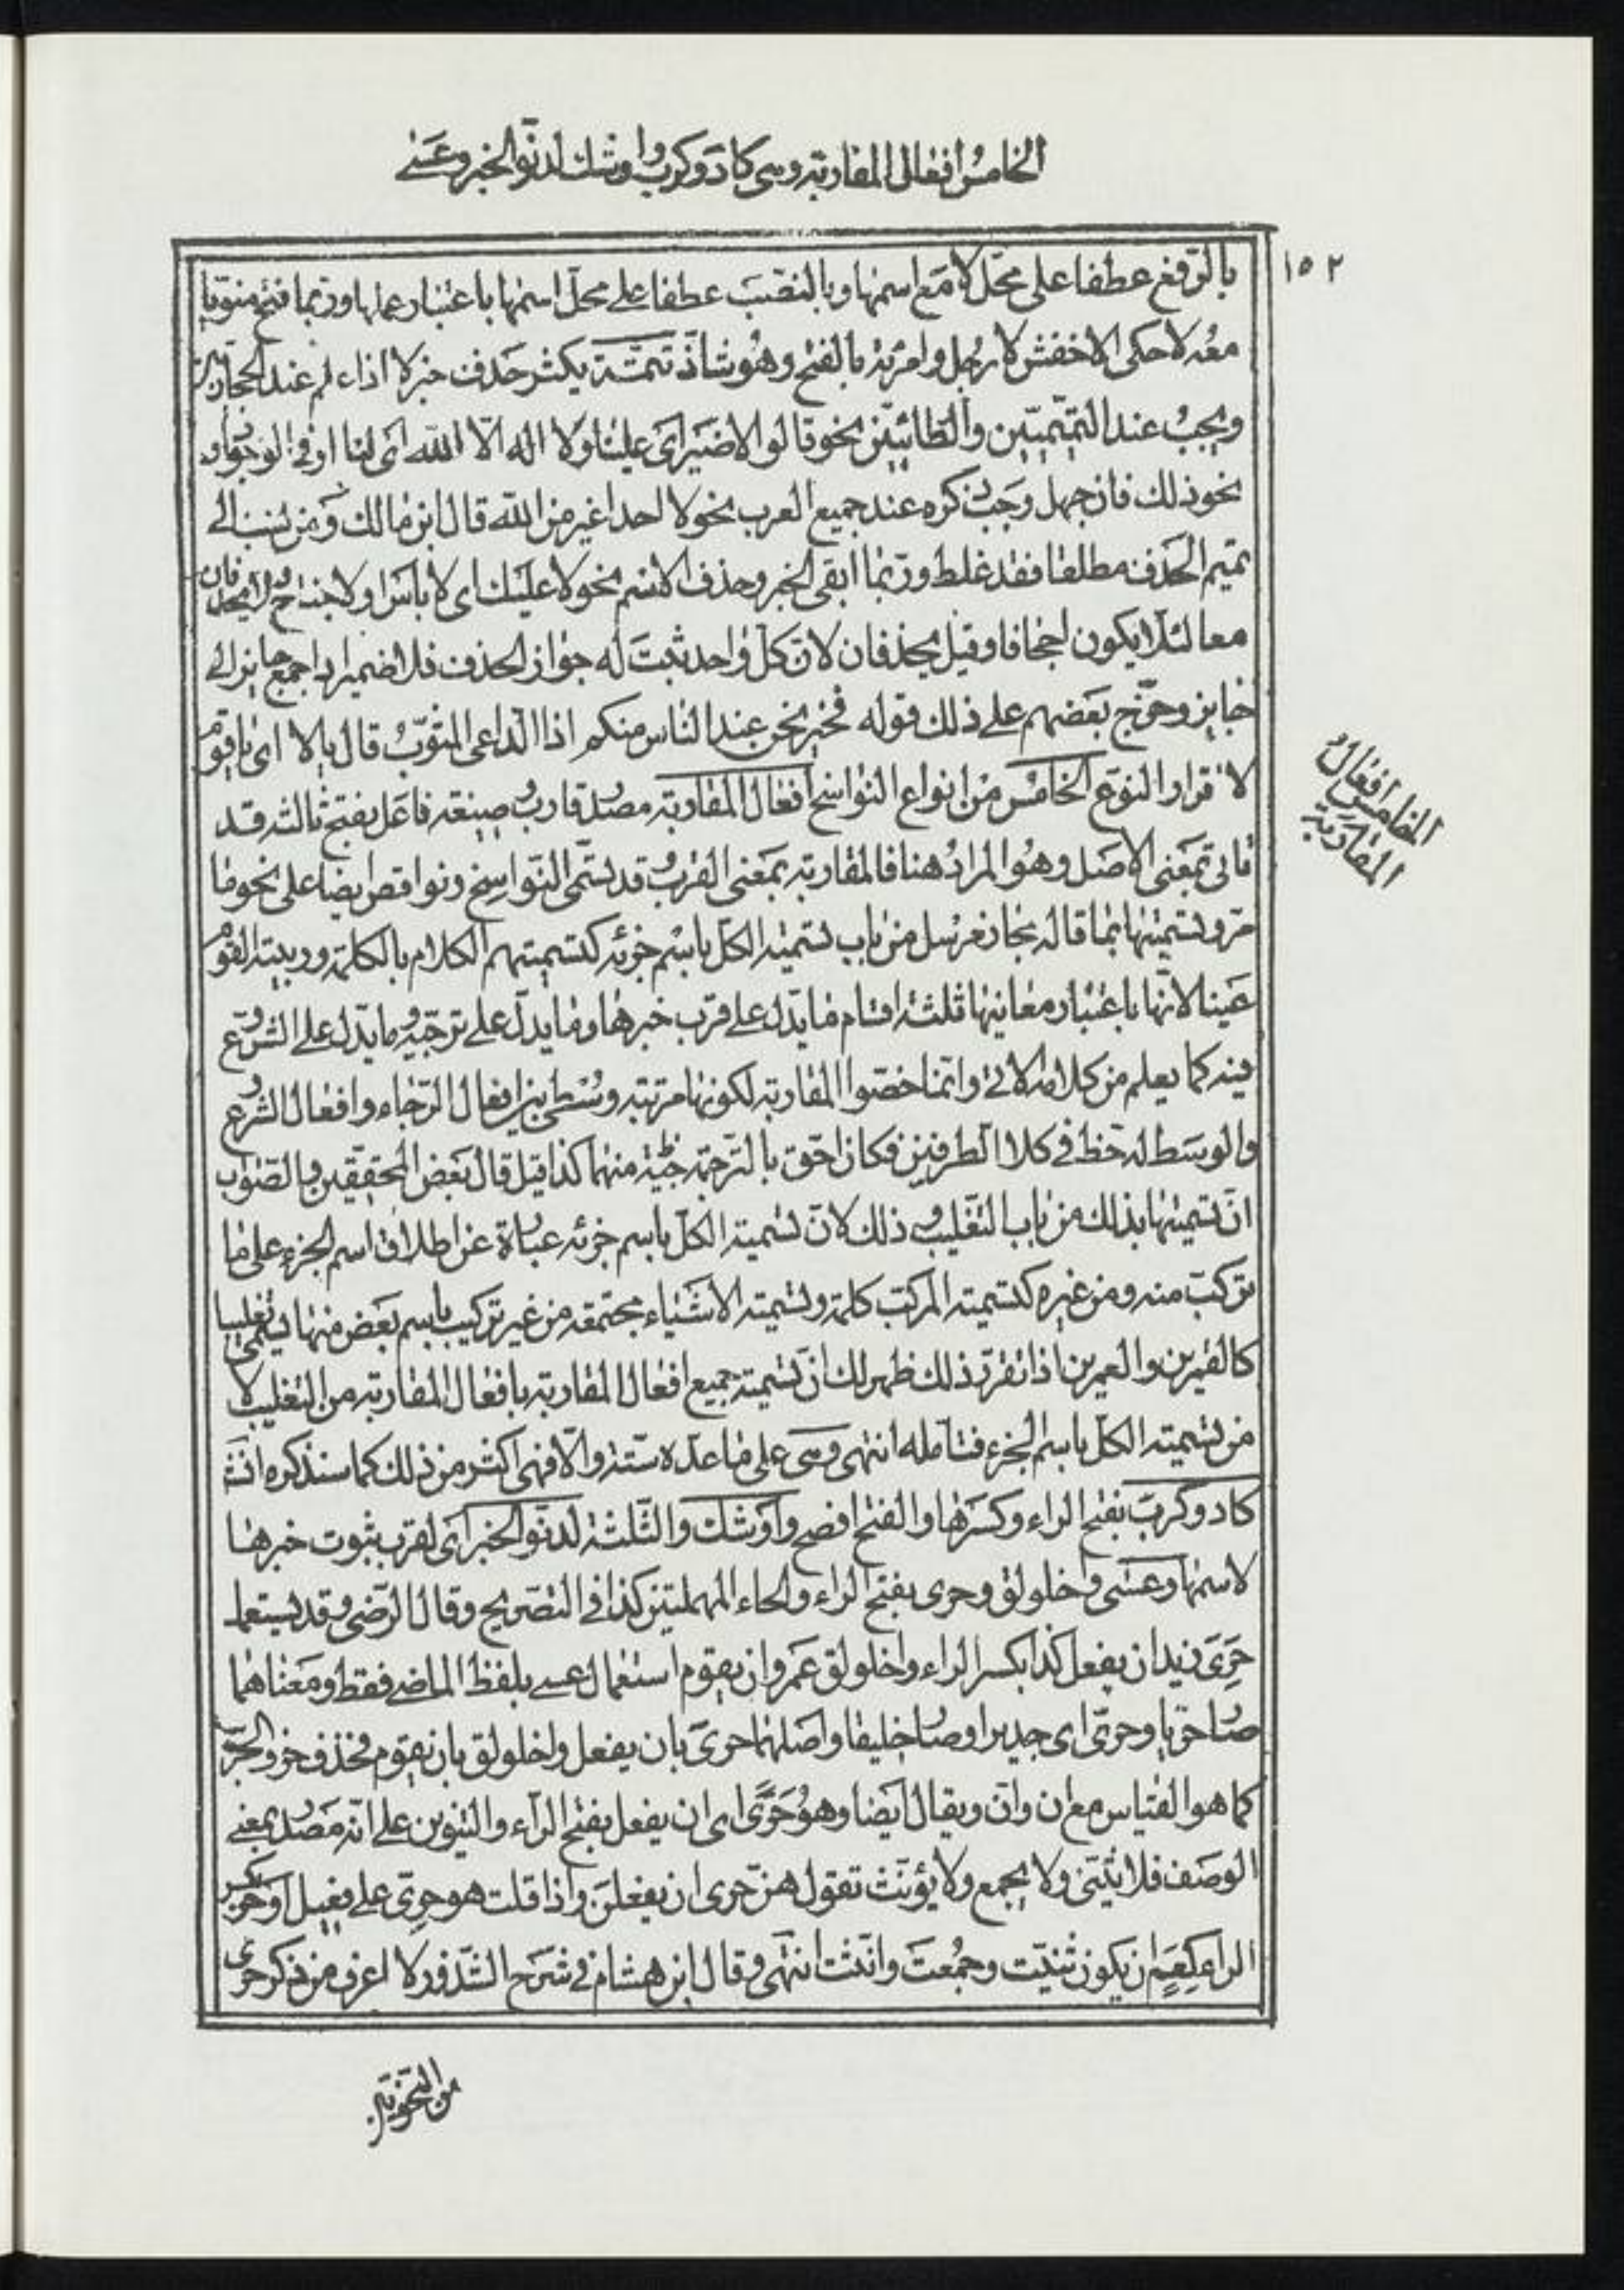 الخامس افعال المقاربة وهي كاد وكرب واوشك لدنوّ الخبر وعسى
١٥٢
بالرّفع عطفا على محلّ لا مع اسمها وبالنصب عطفا على محلّ اسمها باعتبار عملها وربّما فتح منويّا
معه لا حكى الاخفش لا رجل وامرئة بالفتح وهو شاذّ تتمّة يكثر حذف خبر لا اذا علم عند الحجازيّين
ويجب عند التّميميّين والطّائيّين نحو قالوا لا ضير اى علينا ولا اله الّا اللّه اى لنا او في الوجود او
نحو ذلك فان جهل وجب ذكره عند جميع العرب نحو لا احد اغير من اللّه قال ابن مالك ومن نسب الى
تميم الحذف مطلقا فقد غلط وربّما ابقى الخبر وحذف الاسم نحو لا عليك اى لا باس او لا جناح ولا يحذفان
معا لئلّا يكون اجحافا وقيل يحذفان لانّ كلّ واحد ثبت له جواز الحذف فلا ضمير اذا جمع جايز الى
جايز وخرّج بعضهم على ذلك قوله فخير نحن عند الناس منكم اذا الدّاعى المثوّب قال يالا اى يا قوم
لا فرار والنوع الخامس من انواع النواسخ افعال المقاربة مصدر قارب وصيغة فاعل بفتح ثالثه قد
تاتى بمعنى الاصل وهو المراد هنا فالمقاربة بمعنى القرب وقد تسمّى النّواسخ ونواقص ايضا على نحو ما
مرّ وتسميتها بما قاله مجاز مرسل من باب تسمية الكلّ باسم جزئه كتسميتهم الكلام بالكلمة وربيئة القوم
عينا لانّها باعتبار معانيها ثلثة اقسام ما يدّل على قرب خبرها وما يدلّ على ترجّيه وما يدّل على الشروع
فيه كما يعلم من كلامه الاتى وانّما خصّوا المقاربة لكونها مرتبة وسطى بين افعال الرّجاء وافعال الشروع
والوسط له حظ في كلا الطرفين فكان احقّ بالتّرجمة منهما كذا قيل قال بعض المحقّقين والصّواب
انّ تسميتها بذلك من باب التغليب وذلك لانّ تسمية الكلّ باسم جزئه عبارة عن اطلاق اسم الجزء على ما
تركّب منه ومن غيره كتسمية المركّب كلمة وتسمية الاشياء مجتمعة من غير تركيب باسم بعض منها يسمّى تغليبا
كالقمرين والعمرين اذا تقرّر ذلك ظهر لك انّ تسمية جميع افعال المقاربة بافعال المقاربة من التغليب لا
من تسمية الكلّ باسم الجزء فتامله انتهى وهى على ما عدّه ستّة والّا فهى اكثر من ذلك كما سنذكره انش
كاد وكرب بفتح الراء وكسرها والفتح افصح واوشك والثّلثة لدنّو الخبر اى لقرب ثبوت خبرها
لاسمها وعسى واخلولق وحرى بفتح الراء والحاء المهملتين كذا في التصريح وقال الرّضى وقد يستعمل
حرى زيد ان يفعل كذا بكسر الراء واخلولق عمرو ان يقوم استعمال عسى بلفظ الماضى فقط ومعناهما
صار حريّا وحرّى اى جديرا وصار خليقا واصلهما حرىّ بان يفعل واخلولق بان يقوم فحذف حرف الجرّ
كما هو القياس مع ان وانّ ويقال ايضا وهو حَرًى اى ان يفعل بفتح الرآء والتنوين على انّه مصدر بمعنى
الوصف فلا يثنّى ولا يجمع ولا يؤنّث تقول هنّ حرى ان يفعلن واذا قلت هو حرىّ على فعيل او حرٍ بكسر
الراء كعمٍ ان يكون ثنيّت وجمعت وانّثت انتهى وقال ابن هشام في شرح الشّذور لا اعرف من ذكر حرى
الخامس افعال
المقاربة
من النحويّين